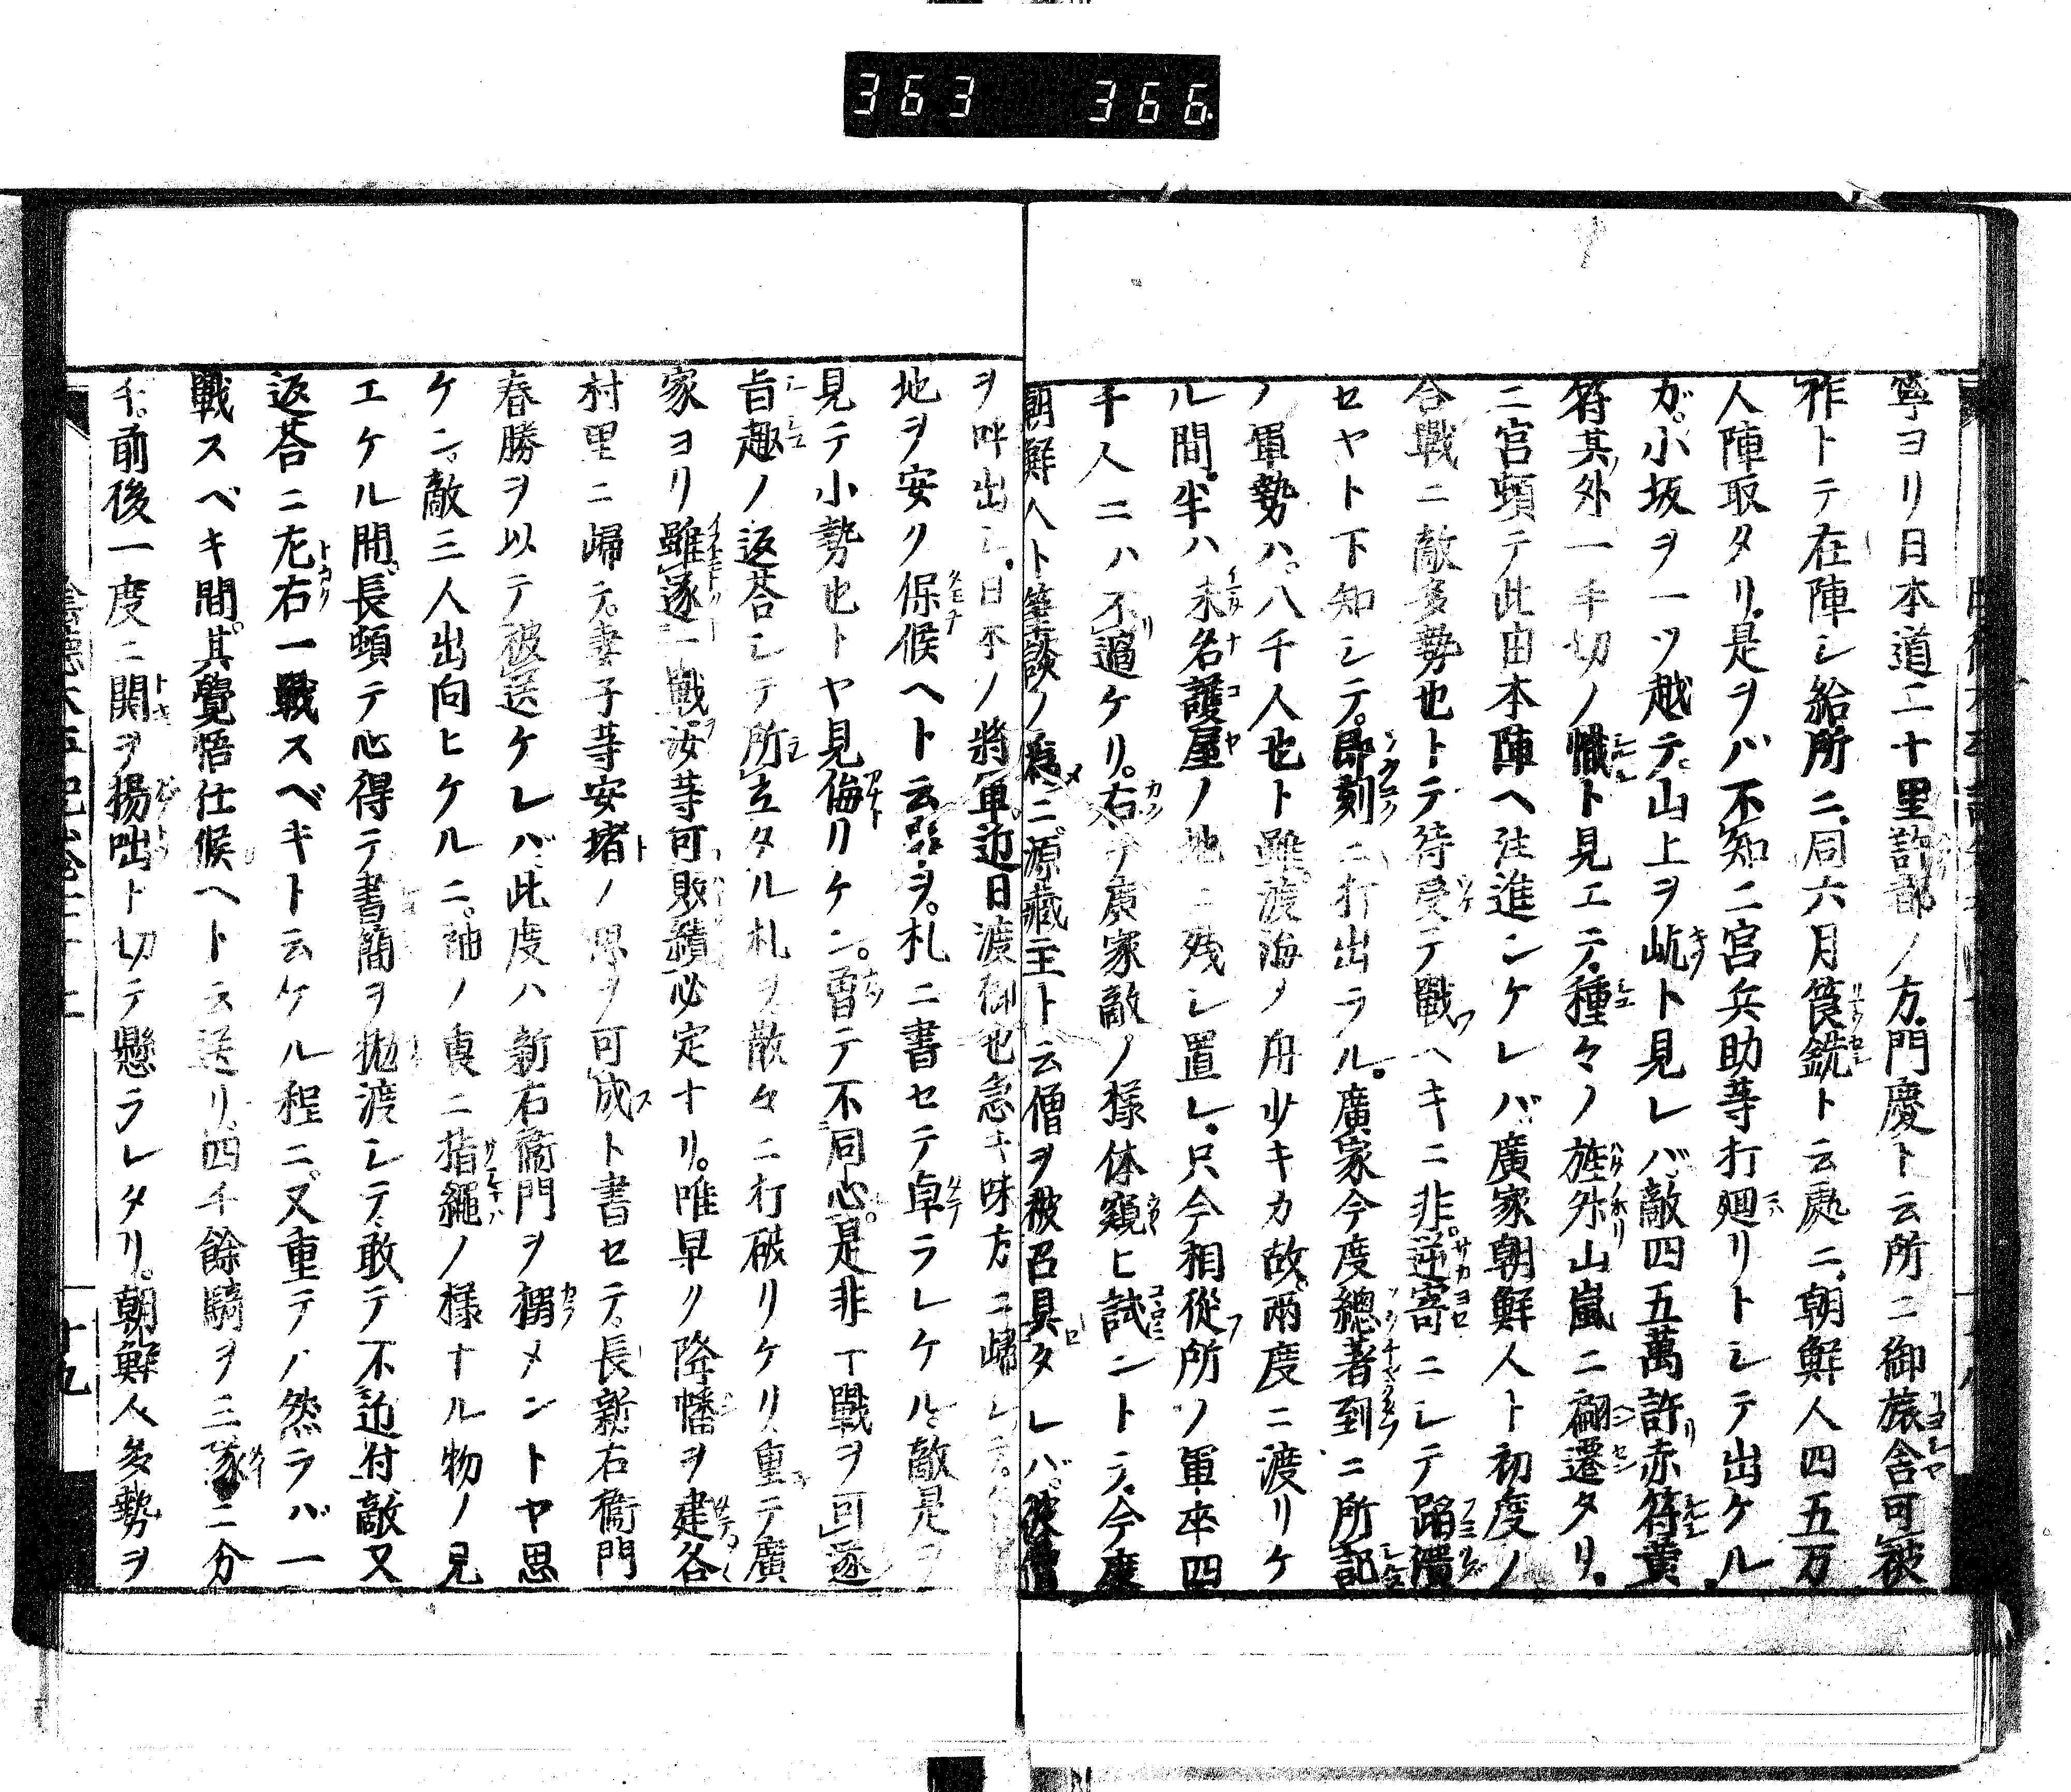 363 366
寧ヨリ日本道二十里許都ノ方門慶ト云所ニ御旅舎可被
祚トテ在陣シ給所ニ同六月筤銃ト云處ニ朝鮮人四五万
人陣取タリ是ヲバ不知二宮兵助等打廻リトシテ出ケル
ガ小坂ヲ一ツ越テ山上ヲ屹ト見レバ敵四五萬許赤符黄
符其外一手切ノ幟ト見エテ種々ノ旌外山嵐ニ翩遷タリ
二宮頓テ此由本陣ヘ注進シケレバ廣家朝鮮人ト初度ノ
合戰ニ敵多勢也トテ待受テ戰ヘキニ非逆寄ニシテ蹈潰
セヤト下知シテ即刻ニ打出ラル廣家今度總著到ニ所記
ノ軍勢ハ八千人也ト雖渡海ノ舟少キカ故兩度ニ渡リケ
ル間半ハ未名護屋ノ地ニ殘シ置レ只今相從所ノ軍卒四
千人ニハ不過ケリ右テ廣家敵ノ様体窺ヒ試ントテ今度
朝鮮人ト筆談ノ為ニ源藏主ト云僧ヲ被召具タレハ彼僧
ヲ呼出シ日本ノ將軍近日渡御也急キ味方ニ歸シテ
地ヲ安ク保候ヘト云器ヲ札ニ書セテ卓ラレケル敵是ヲ
見テ小勢也トヤ見侮リケン曽テ不同心是非一戰ヲ可遂
旨趣ノ返荅シテ所立タル札ヲ散々ニ打破リケリ重テ廣
家ヨリ雖遂一戰汝等可敗績必定ナリ唯早ク降幡ヲ建各
村里ニ歸テ妻子等安堵ノ思ヲ可成ト書セテ長新右衞門
春勝ヲ以テ被送ケレバ此度ハ新右衞門ヲ搦メントヤ思
ケン敵三人出向ヒケルニ袖ノ裏ニ指繩ノ様ナル物ノ見
エケル間長頓テ心得テ書簡ヲ抛渡シテ敢テ不近付敵又
返荅ニ左右一戰スベキト云ケル程ニ又重テノ然ラバ一
戰スベキ間其覺悟仕候ヘト云送リ四千餘騎ヲ三隊ニ分
チ前後一度ニ鬨ヲ揚咄ト切テ懸ラレタリ朝鮮人多勢ヲ
十九